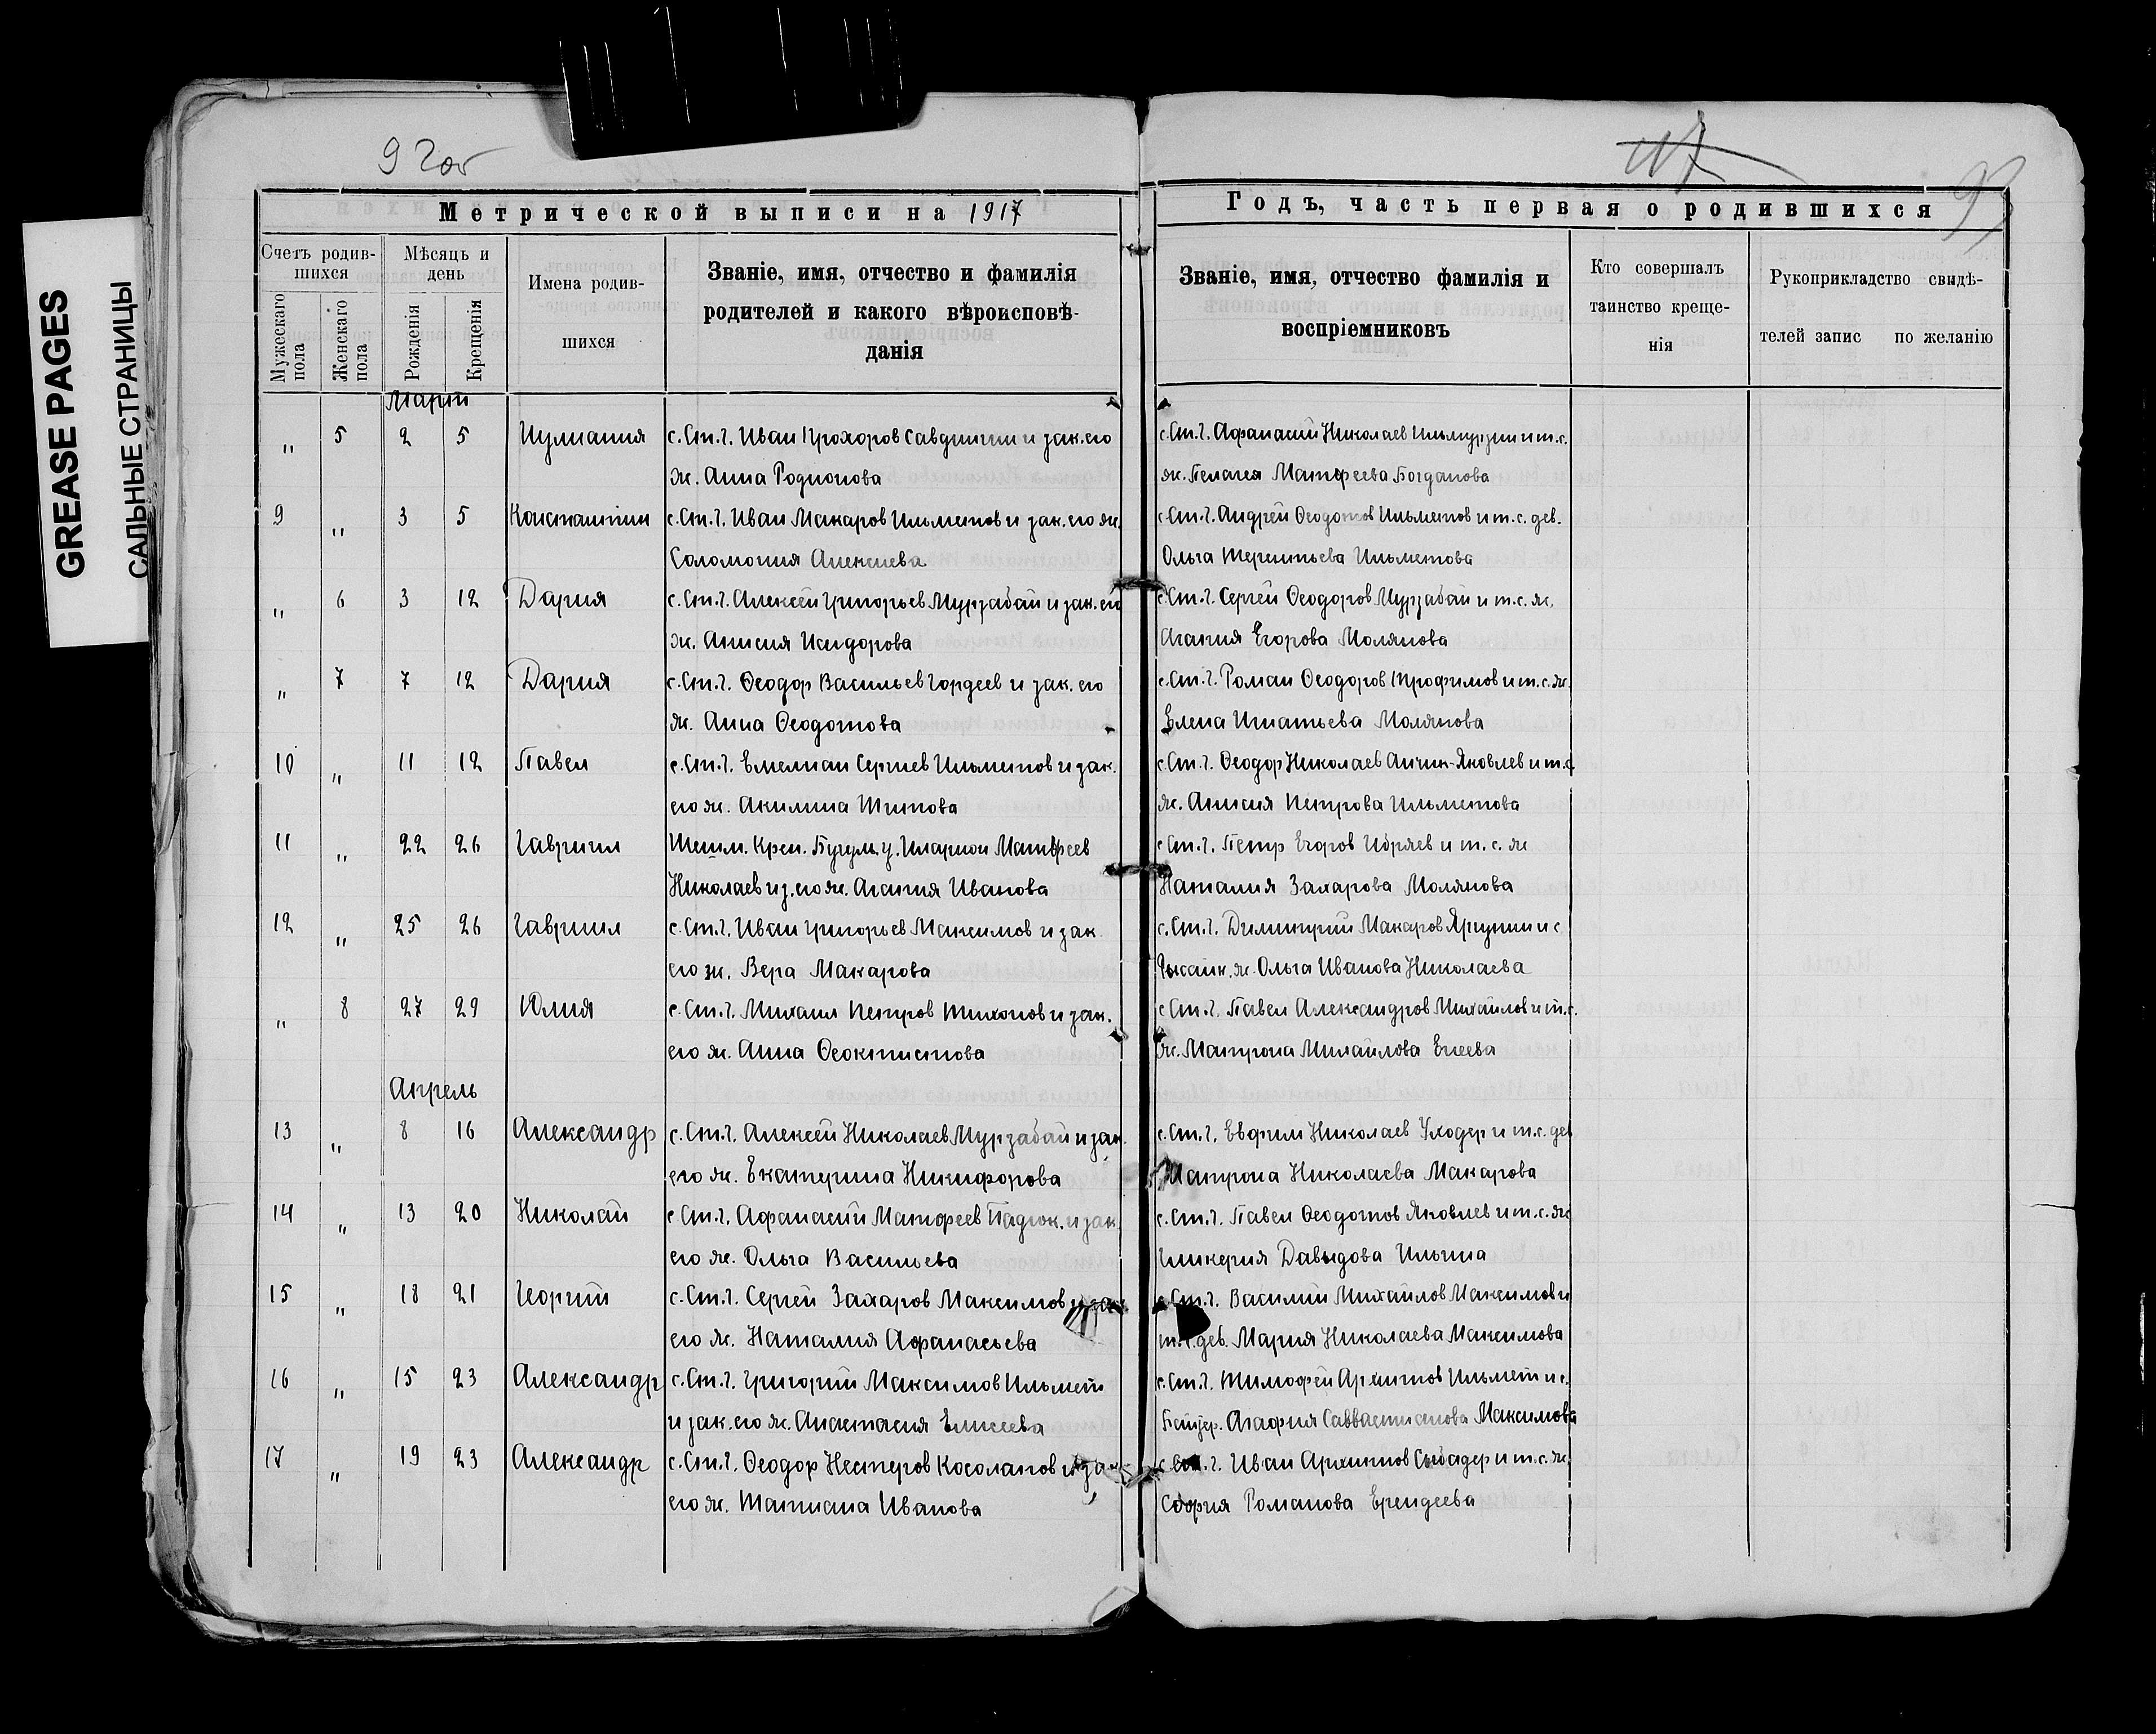 GREASE PAGES
САЛЬНЫЕ СТРАНИЦЫ
92об
93
Метрической выписи на 1917
Годъ, часть первая о родившихся
Счетъ родившихся
Мужескаго пола
Женскаго пола
Мѣсяцъ и день
Рожденія
Крещенія
Имена родив-
шихся
Званіе, имя, отчество и фамилія
родителей и какого вѣроисповѣ-
данія
Званіе, имя, отчество фамилія и
воспріемниковъ
Кто совершалъ
таинство креще-
нія
Рукоприкладство свидѣ-
телей запис по желанію
Март
" 5 2 5 Иулиания с. Ст.Ч. Иван Прохоров и зак. его с. Ст.Ч. Афанасий Николаев и т.с.
ж. Анна Родионова ж. Пелагея Матфеева Богданова
9 " 3 5 Константин с. Ст.Ч. Иван Макаров Ильметов и зак. его ж. с. Ст.Ч. Андрей Феодотов Ильметов и т.с. дев.
Соломония Алексиева Ольга Терентьева Ильметова
" 6 3 12 Дария с. Ст.Ч. Алексей Григорьев Мурзабай и зак. его с. Ст.Ч. Сергей Феодоров Мурзабай и т.с. ж.
ж. Анисия Исидорова Агапия Егорова Молянова
" 7 7 12 Дария с. Ст.Ч. Феодор Васильев Гордеев и зак. его с. Ст.Ч. Роман Феодоров Трофимов и т.с. ж.
ж. Анна Феодотова Елена Игнатьева Молянова
10 " 11 12 Павел с. Ст.Ч. Емелиан Сергиев Ильметов и зак. с. Ст.Ч. Феодор Николаев Яковлев и т.с.
его ж. Акилина Титова ж. Анисия Петрова Ильметова
11 " 22 26 Гавриил Шешм. Креп. Бугульм. у. Иларион Матфеев с. Ст.Ч. Петр Егоров Ибряев и т.с. ж
Николаев и з. его ж. Агапия Иванова Наталия Захарова Молянова
12 " 25 26 Гавриил с. Ст.Ч. Иван Григорьев Максимов и зак с. Ст.Ч. Димитрий Макаров и с
его ж. Вера Макарова ж. Ольга Иванова Николаева
" 8 27 29 Юлия с. Ст.Ч. Михаил Петров Тихонов и зак. с. Ст.Ч. Павел Александров Михайлов и т.с.
его ж. Анна Феоктистова ж. Матрона Михайлова Енеева
Апрель
13 " 8 16 Александр с. Ст.Ч. Алексей Николаев Мурзабай и зак. с. Ст.Ч. Евфим Николаев Уходер и т.с. дев
его ж. Екатерина Никифорова Матрона Николаева Макарова
14 " 13 20 Николай с. Ст.Ч. Афанасий Матфеев и зак с. Ст.Ч. Павел Феодотов Яковлев и т.с. ж
его ж. Ольга Васильева Гликерия Давыдова Ильина
15 " 18 21 Георгий с. Ст.Ч. Сергей Захаров Максимов и зак с. Ст.Ч. Василий Михайлов Максимов и
его ж. Наталия Афанасьева т.с. дев. Мария Николаева Максимова
16 " 15 23 Александр с. Ст.Ч. Григорий Максимов Ильмет с. Ст.Ч. Тимофей Архипов Ильмет и с.
и зак. его ж. Анастасия Елисеева Агафия Савватианова Максимова
17 " 19 23 Александр с. Ст.Ч. Феодор Нестеров Косолапов и зак с. Ст.Ч. Иван Архипов и т.с. ж.
его ж. Татиана Иванова София Романова Ерендеева